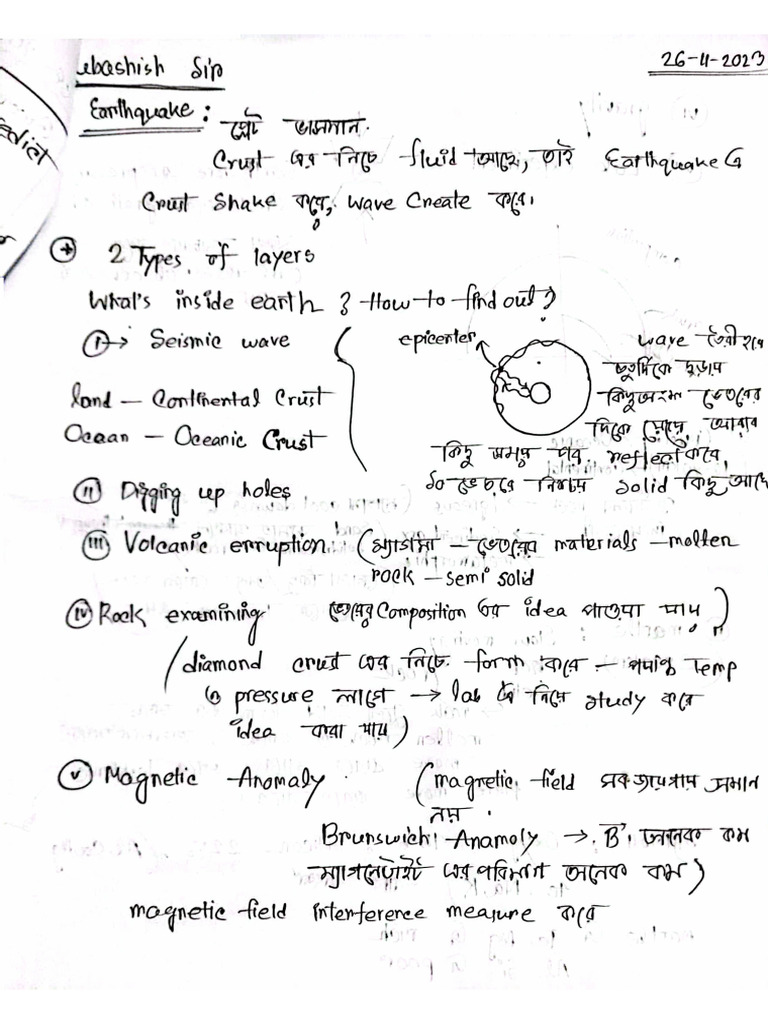 ebashish Sir
26-4-2023
edict
Earthquake: প্লেট ভাসমান.
Crust এর নিচে fluid আছে, তাই Earthquake এ
Crust Shake করে, wave Create করে।
2 Types of layers
What's inside earth? How to find out?
(i) → Seismic wave
epicenter
wave তৈরী হবে
চতুর্দিকে ছড়ায়
land — Continental Crust
কিছু অংশ ভেতরের
Ocean — Oceanic Crust
দিকে যেয়ে, আবার
কিছু সময় পর reflect করে,
so ভেতরে নিশ্চয় solid কিছু আছে
(ii) Digging up holes
(iii) Volcanic erruption (ম্যাগমা — ভেতরের materials — molten
rock — semi solid
ভেতরের Composition এর idea পাওয়া যায়)
(iv) Rock examining
(diamond crust এর নিচে form করে — পর্যাপ্ত temp
ও pressure লাগে → lab এ নিয়ে study করে
idea করা যায়)
(v) Magnetic Anomaly (magnetic field সব জায়গায় সমান
নয়.
Brunswich Anamoly → B অনেক কম
ম্যাগনেটাইট এর পরিমাণ অনেক কম)
magnetic field interference measure করে